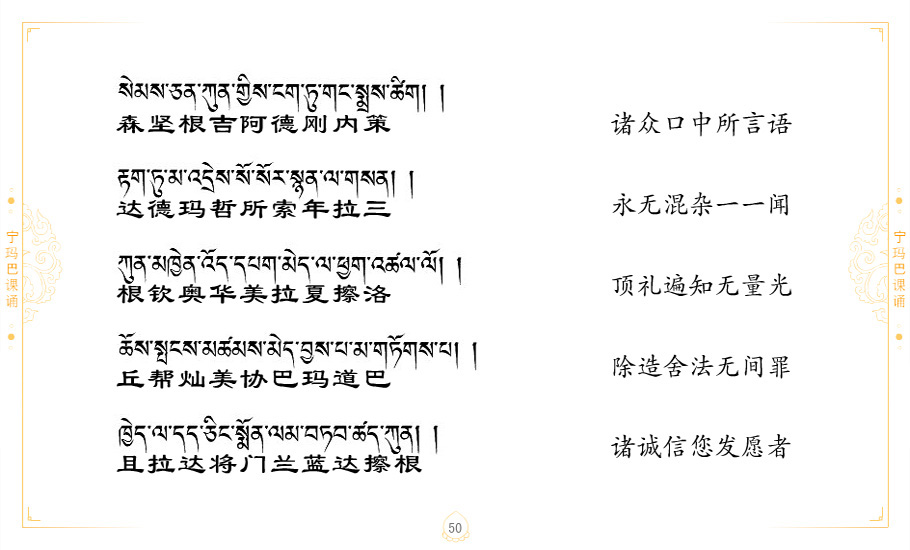 སེམས་ཅན་ཀུན་གྱིས་ངག་ཏུ་གང་སྨྲས་ཚིག། །
森坚根吉阿德刚内策
诸众口中所言语
རྟག་ཏུ་མ་འདྲེས་སོ་སོར་སྙན་ལ་གསན། །
达德玛哲所索年拉三
永无混杂一一闻
ཀུན་མཁྱེན་འོད་དཔག་མེད་ལ་ཕྱག་འཚལ་ལོ། །
根钦奥华美拉夏擦洛
顶礼遍知无量光
ཆོས་སྤངས་མཚམས་མེད་བྱས་པ་མ་གཏོགས་པ། །
丘帮灿美协巴玛道巴
除造舍法无间罪
ཁྱེད་ལ་དད་ཅིང་སྨོན་ལམ་བཏབ་ཚད་ཀུན། །
且拉达将门兰蓝达擦根
诸诚信您发愿者
宁玛巴课诵
宁玛巴课诵
50